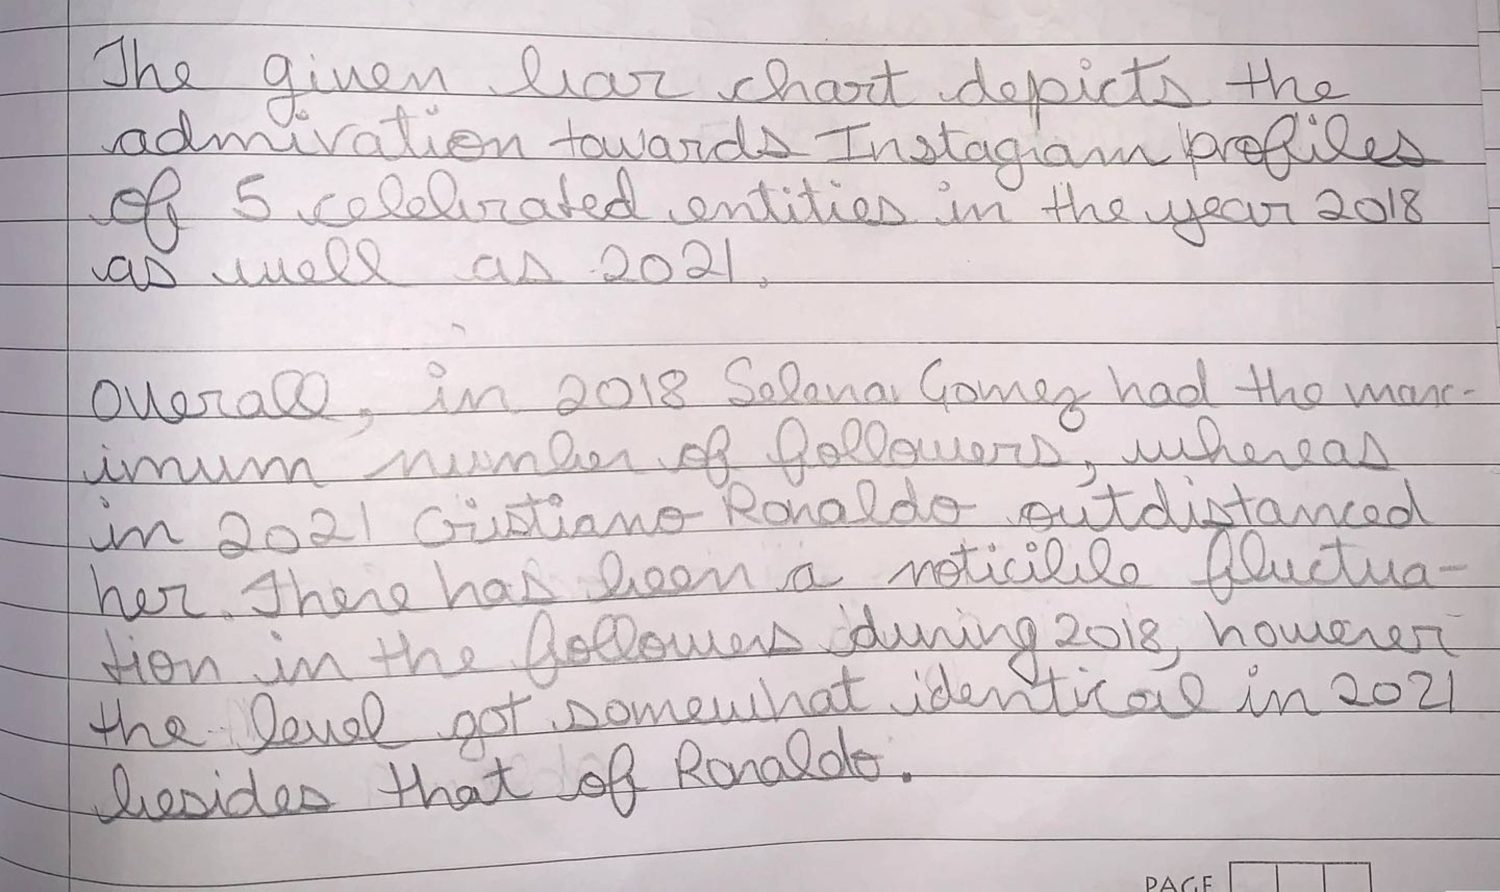 The given bar chart depicts the
admiration towards Instagram profiles
of 5 celebrated entities in the year 2018
as well as 2021.
Overall, in 2018 Selena Gomez had the max-
imum number of followers, whereas
in 2021 Cristiano Ronaldo outdistanced
her. There has been a noticible fluctua-
tion in the followers during 2018, however
the level got somewhat identical in 2021
besides that of Ronaldo.
PAGE